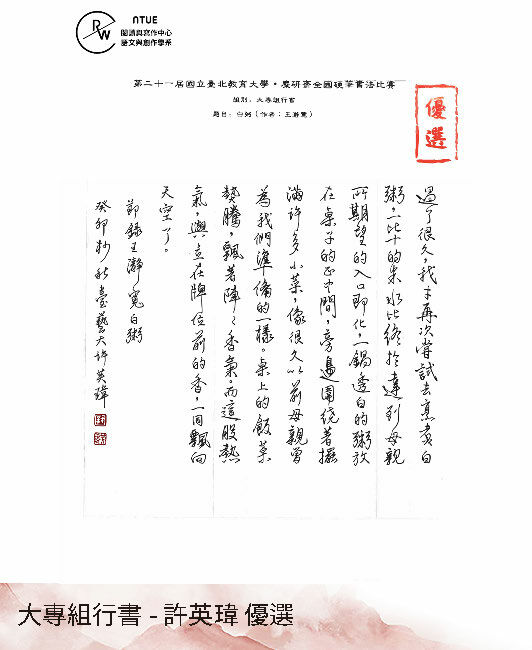 RW
NTUE
閱讀與寫作中心
語文與創作學系
第二十一屆國立臺北教育大學・慶研齋全國硬筆書法比賽
組別：大專組行書
題目：白粥（作者：王瀞寬）
優選
過了很久，我才再次嘗試去烹煮白
粥，一比十的米水比終於達到母親
所期望的入口即化，一鍋透白的粥放
在桌子的正中間，旁邊圍繞著擺
滿許多小菜，像很久以前母親曾
為我們準備的一樣。桌上的飯菜
熱騰，飄著陣陣香氣。而這股熱
氣，與立在牌位前的香，一同飄向
天空了。
節錄王瀞寬白粥
癸卯杪秋臺藝大許英瑋
大專組行書 - 許英瑋 優選